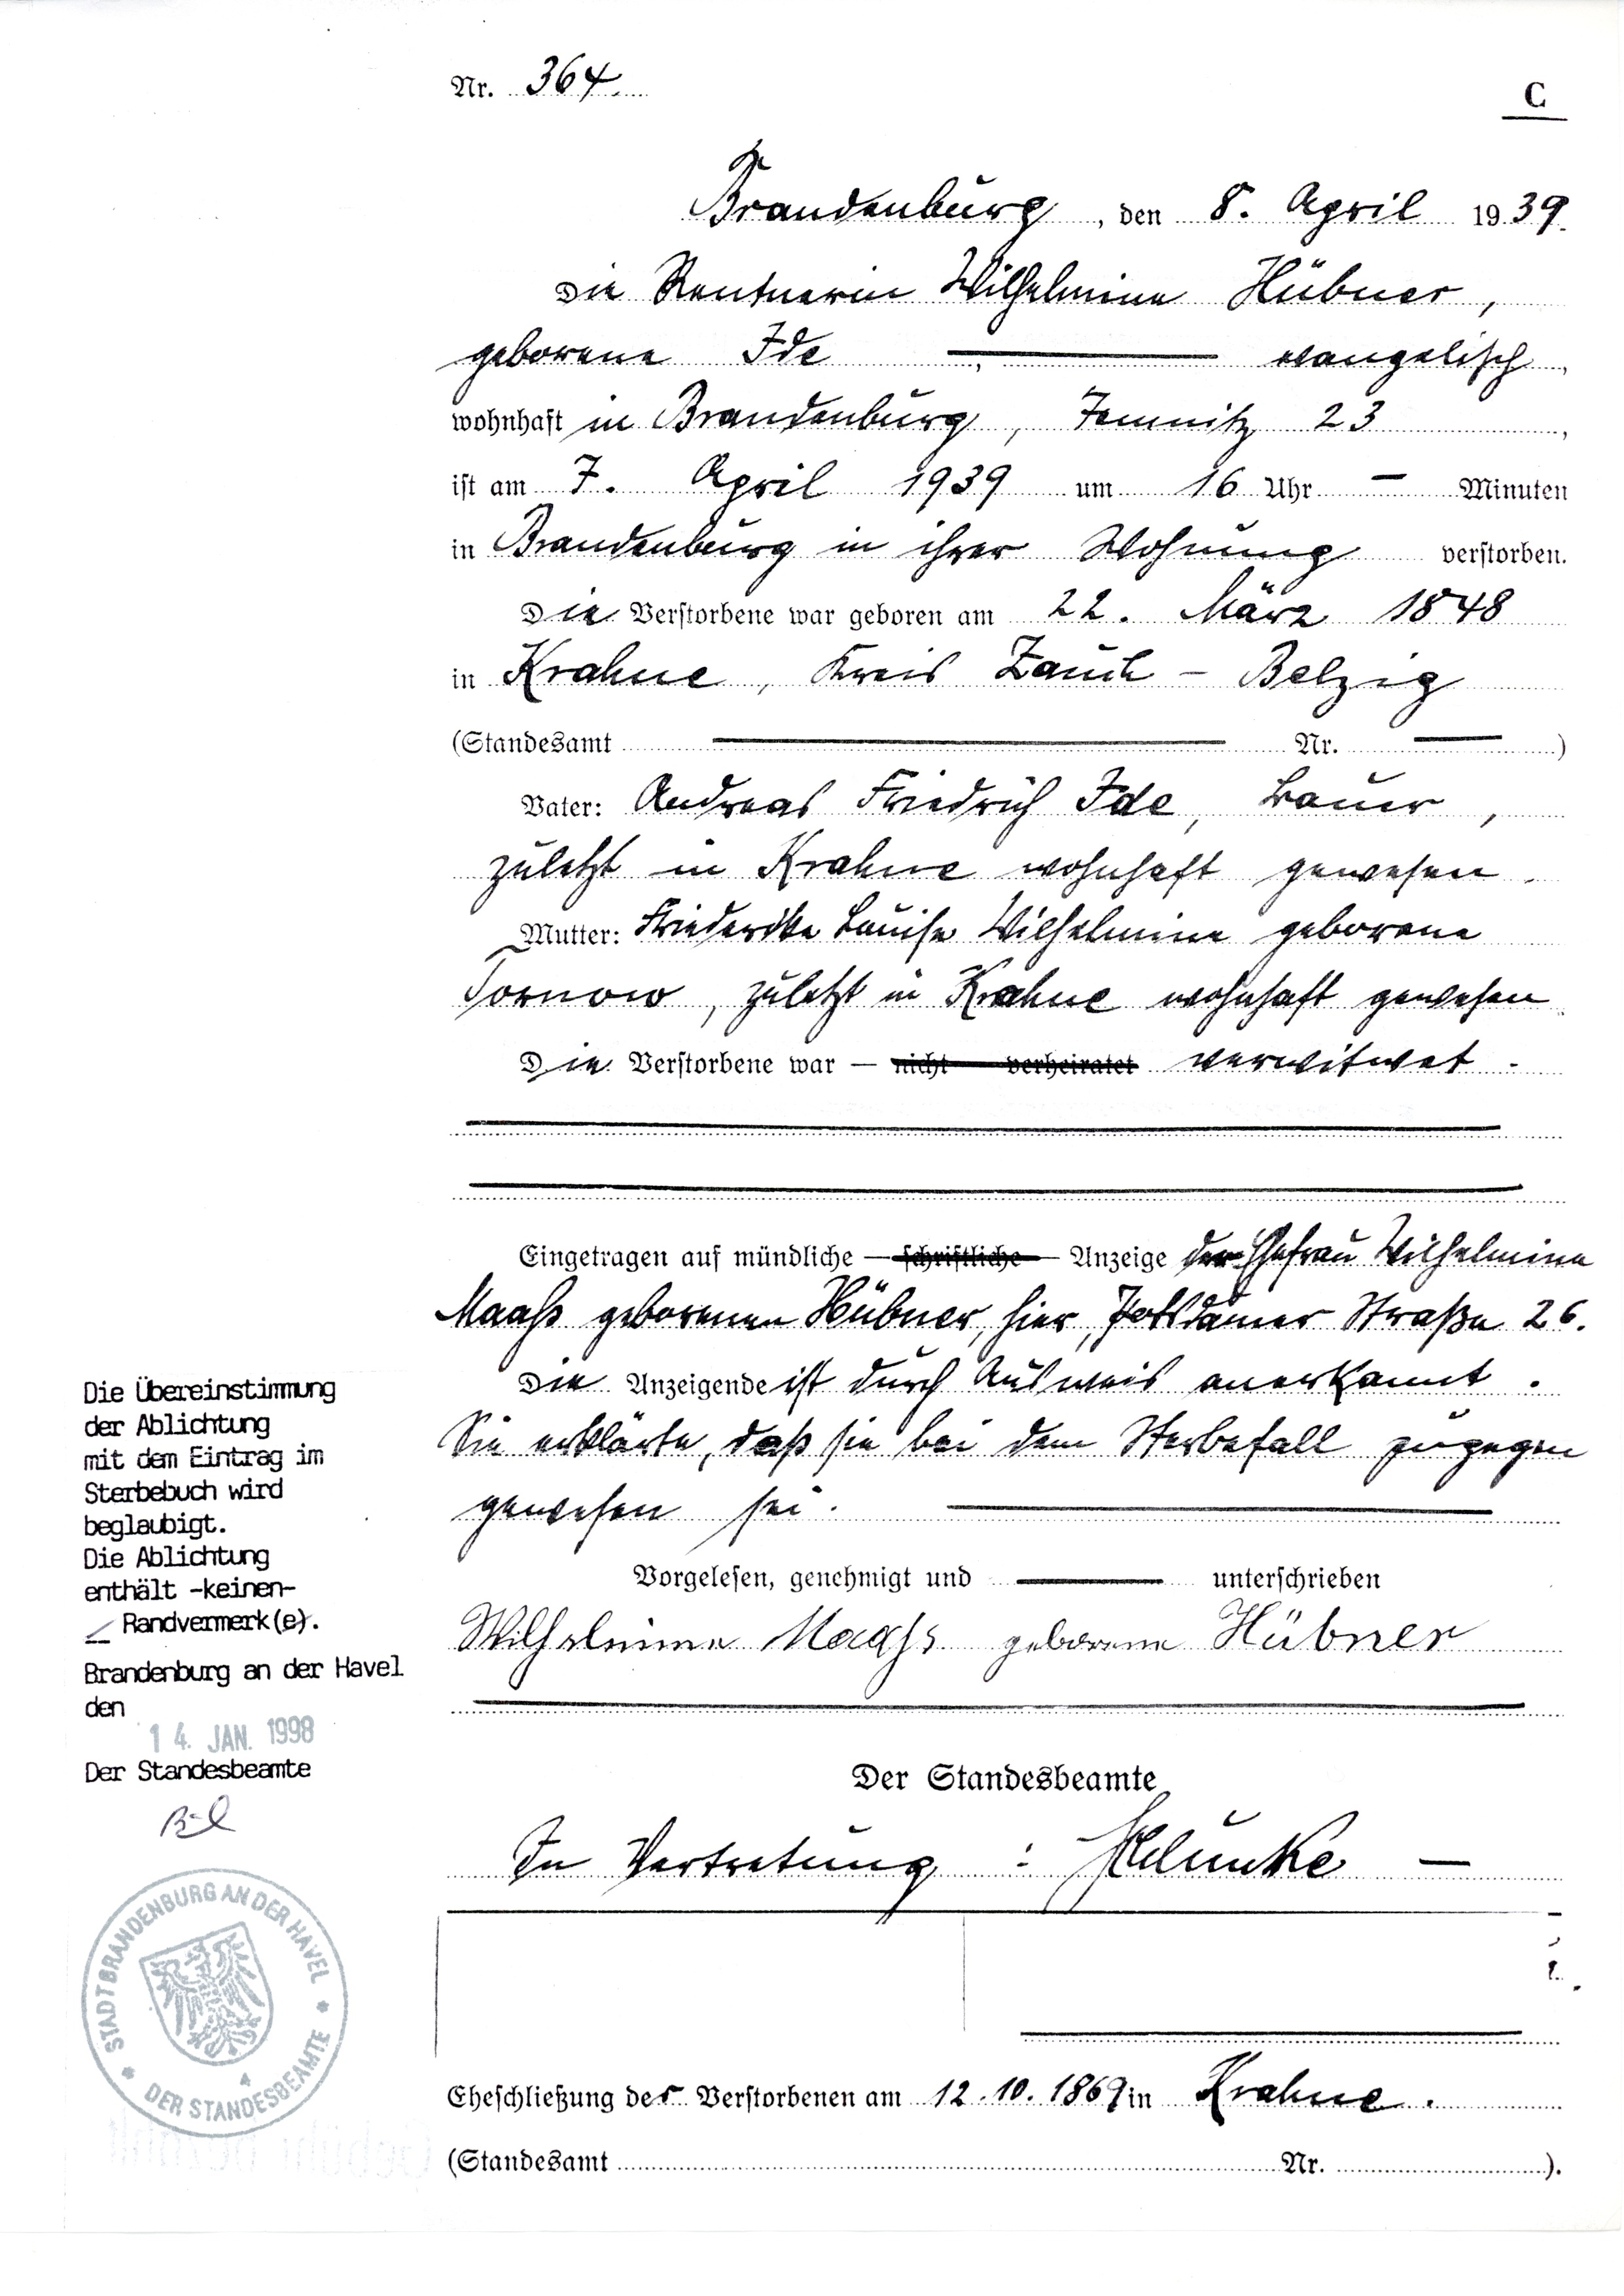 Nr. 364.
C
Brandenburg, den 8. April 1939.
Die Rentnerin Wilhelmine Hübner,
geborene Ide, evangelisch,
wohnhaft in Brandenburg, Temnitz 23,
ist am 7. April 1939 um 16 Uhr — Minuten
in Brandenburg in ihrer Wohnung verstorben.
Die Verstorbene war geboren am 22. März 1848
in Krahne, Kreis Zauch - Belzig
(Standesamt — Nr. —)
Vater: Andreas Friedrich Ide, Bauer,
zuletzt in Krahne wohnhaft gewesen.
Mutter: Friederike Louise Wilhelmine geborene
Tornow, zuletzt in Krahne wohnhaft gewesen.
Die Verstorbene war — nicht verheiratet verwitwet.
Eingetragen auf mündliche — schriftliche — Anzeige der Ehefrau Wilhelmine
Maaß geborenen Hübner, hier, Potsdamer Straße 26.
Die Anzeigende ist durch Ausweis anerkannt.
Sie erklärte, daß sie bei dem Sterbefall zugegen
gewesen sei.
Vorgelesen, genehmigt und — unterschrieben
Wilhelmine Maaß geborene Hübner
Der Standesbeamte
In Vertretung :
Eheschließung der Verstorbenen am 12.10.1869 in Krahne.
(Standesamt Nr. ).
Die Übereinstimmung
der Ablichtung
mit dem Eintrag im
Sterbebuch wird
beglaubigt.
Die Ablichtung
enthält -keinen-
Randvermerk(e).
Brandenburg an der Havel
den
14. JAN. 1998
Der Standesbeamte
STADT BRANDENBURG AN DER HAVEL
DER STANDESBEAMTE
4